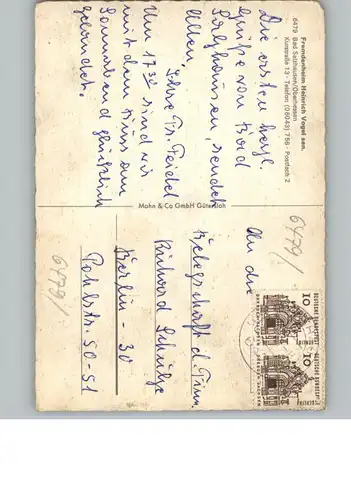 Fremdenheim Heinrich Vogel sen.
6479 Bad Salzhausen/Oberhessen
Kurstraße 13 · Telefon (06043) 756 · Postfach 2
Die ersten herzl.
Grüße von Bad
Salzhausen, sendet
Allen,
Ihre Fr. Seidel
Um 17 32 sind wir
mit dem Bus am
Sonnabend glücklich
gelandet.
Mohn & Co GmbH Gütersloh
6479/
An die
Belegschaft d. Firm.
Richard Schulze
Berlin - 30
Pohlstr. 50-51
6479/
10
DEUTSCHE BUNDESPOST
10
DEUTSCHE BUNDESPOST